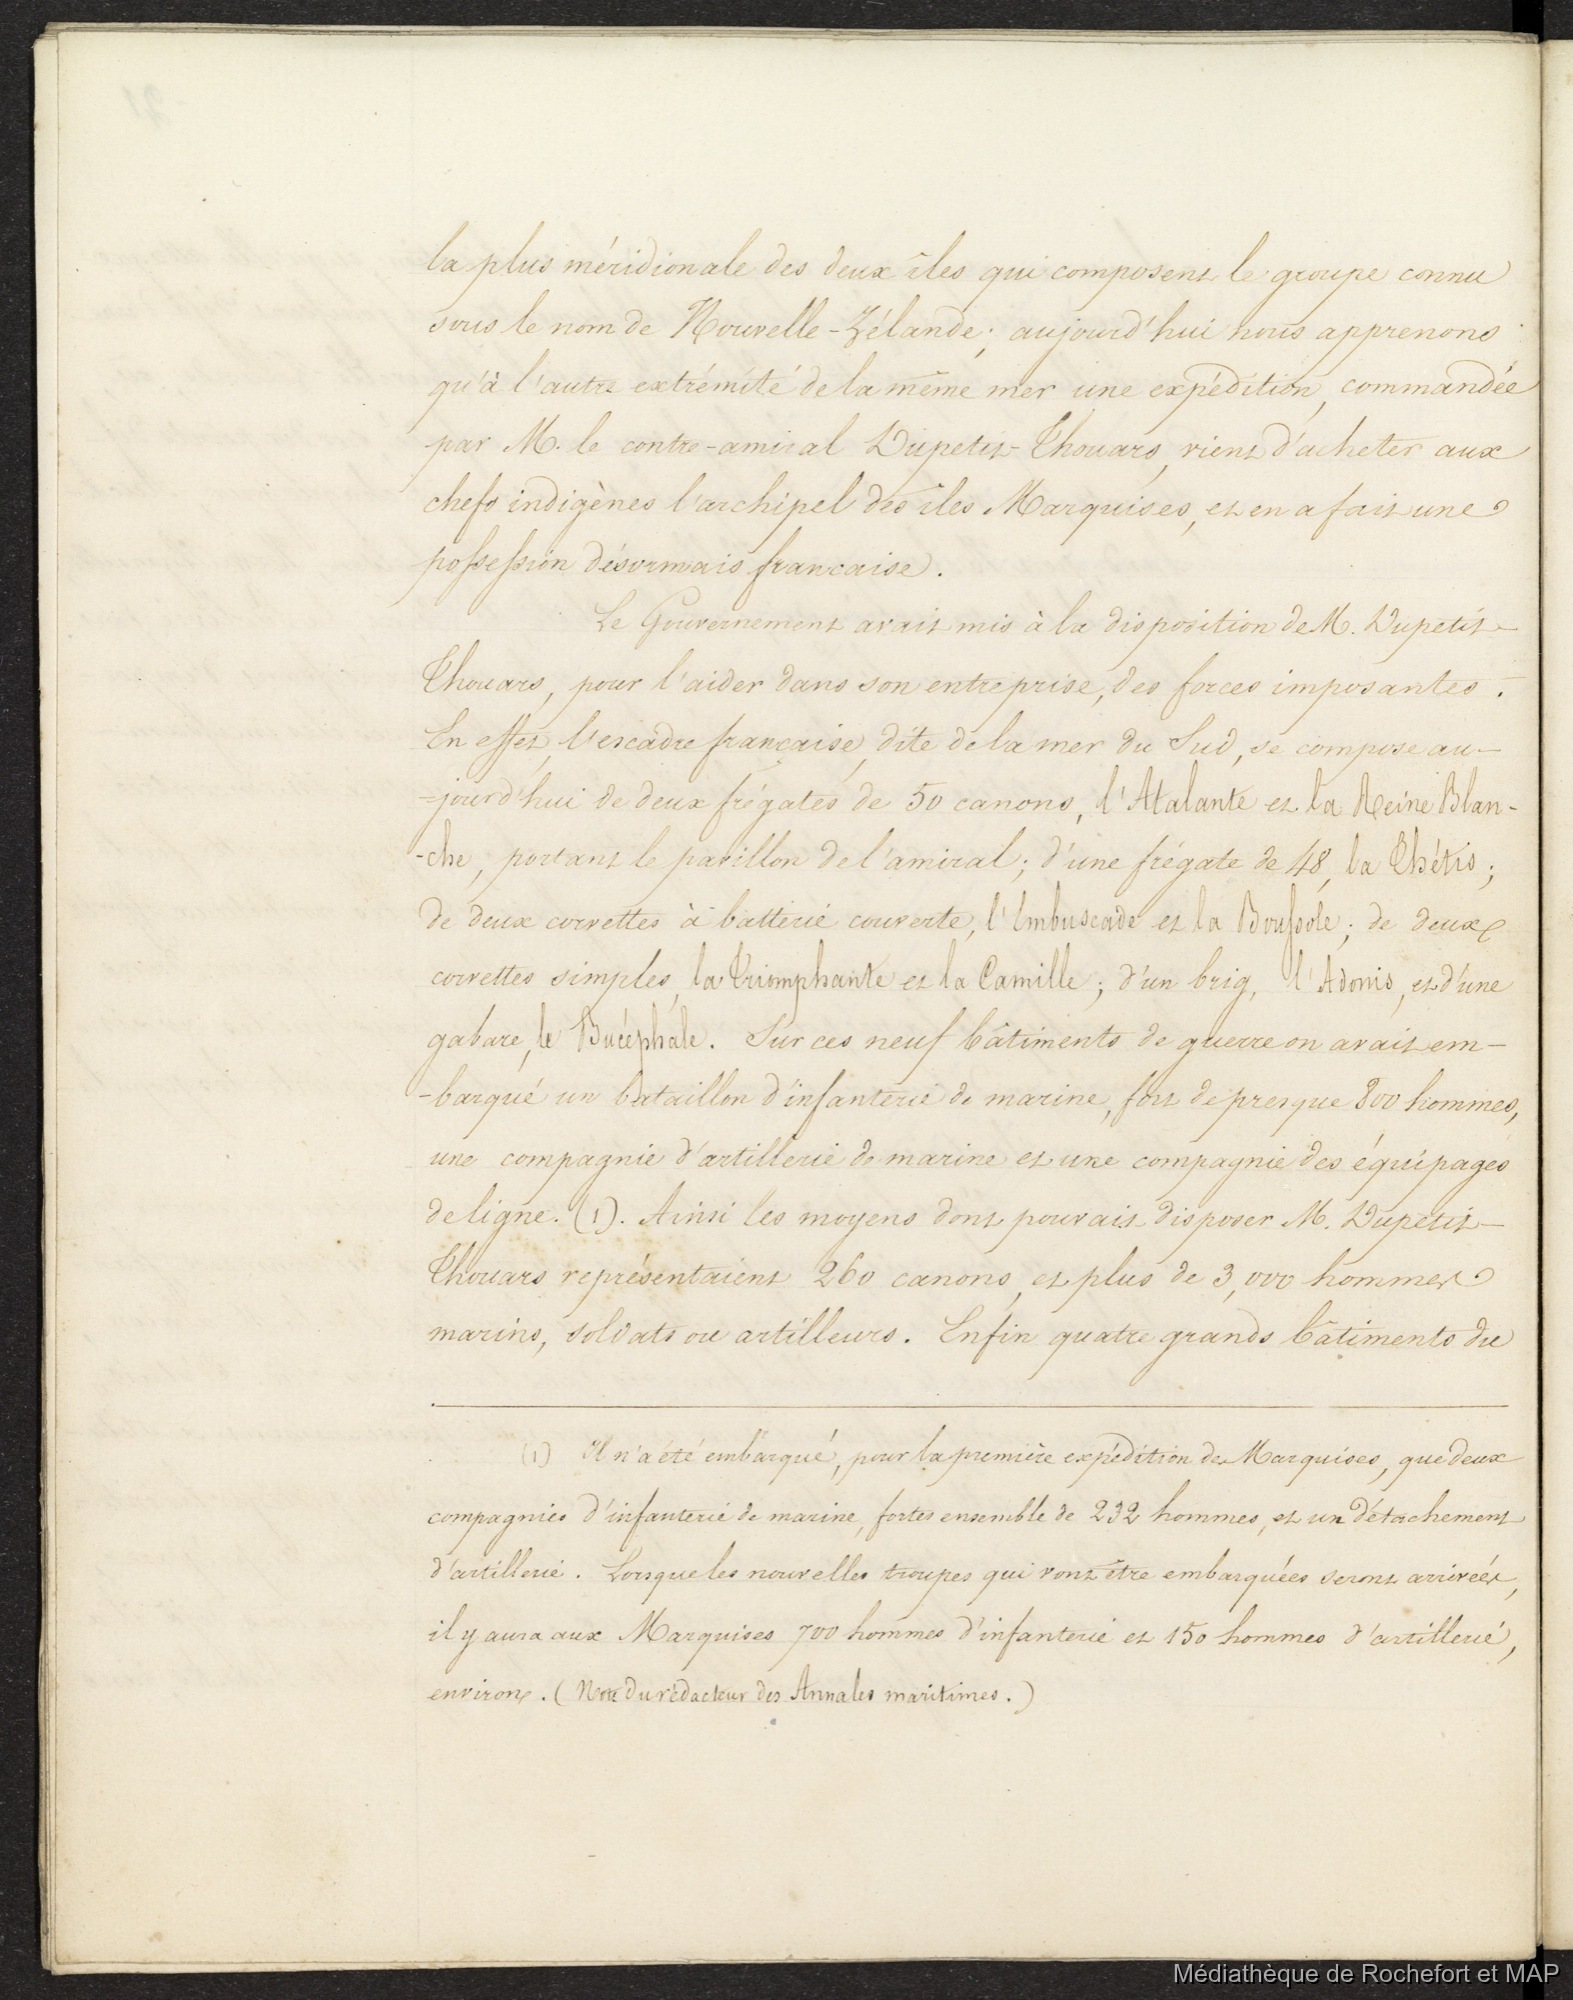 la plus méridionale des deux îles qui composent le groupe connu
sous le nom de Nouvelle-Zélande; aujourd'hui nous apprenons
qu'à l'autre extrémité de la même mer une expédition, commandée
par M. le contre-amiral Dupetit-Thouars, vient d'acheter aux
chefs indigènes l'archipel des îles Marquises, et en a fait une
possession désormais française.
Le Gouvernement avait mis à la disposition de M. Dupetit-
Thouars, pour l'aider dans son entreprise, des forces imposantes.
En effet, l'escadre française, dite de la mer du Sud, se compose au-
-jourd'hui de deux frégates de 50 canons, l'Atalante et la Reine Blan-
-che, portant le pavillon de l'amiral; d'une frégate de 48, la Thétis;
de deux corvettes à batterie couverte, l'Embuscade et la Boussole; de deux
corvettes simples, la Triomphante et la Camille; d'un brig, l'Adonis, et d'une
gabare, le Bucéphale. Sur ces neuf bâtiments de guerre on avait em-
-barqué un bataillon d'infanterie de marine, fort de presque 800 hommes,
une compagnie d'artillerie de marine et une compagnie des équipages
de ligne. (1). Ainsi les moyens dont pouvait disposer M. Dupetit-
Thouars représentaient 260 canons, et plus de 3,000 hommes
marins, soldats ou artilleurs. Enfin quatre grands bâtiments du
(1) Il n'a été embarqué, pour la première expédition des Marquises, que deux
compagnies d'infanterie de marine, fortes ensemble de 232 hommes, et un détachement
d'artillerie. Lorsque les nouvelles troupes qui vont être embarquées seront arrivées,
il y aura aux Marquises 700 hommes d'infanterie et 150 hommes d'artillerie,
environ. (Note du rédacteur des Annales maritimes.)
Médiathèque de Rochefort et MAP